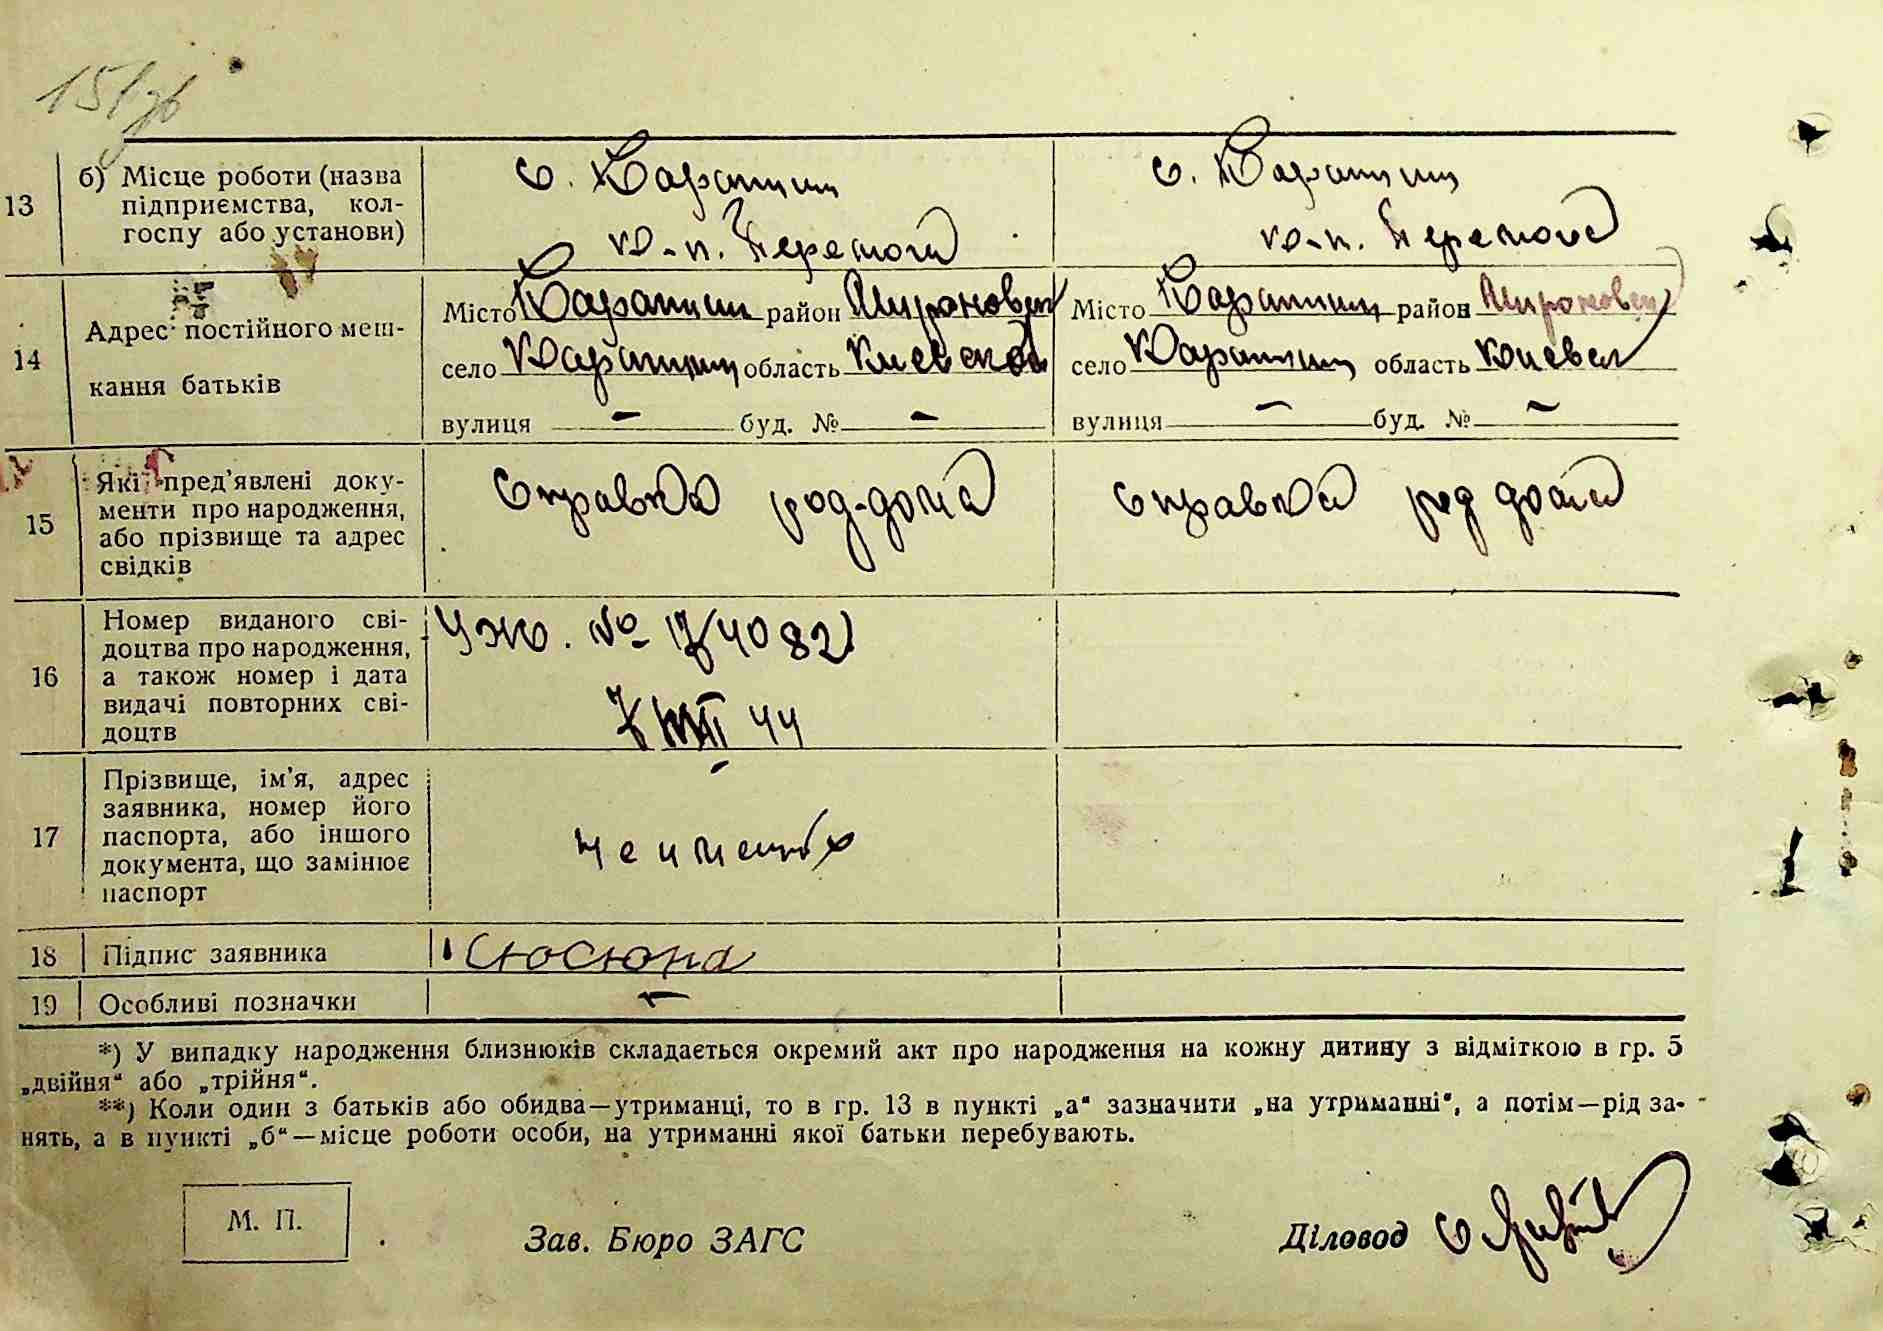 15/зв
13
б) Місце роботи (назва
підприємства, кол-
госпу або установи)
с. Карапиши
к-п. Перемога
с. Карапиши
к-п. Перемога
14
Адрес постійного меш-
кання батьків
Місто Карапиши район Мироновск
село Карапиши область Киевской
вулиця — буд. № —
Місто Карапиши район Мироновск
село Карапиши область Киевск
вулиця — буд. № —
15
Які пред'явлені доку-
менти про народження,
або прізвище та адрес
свідків
Справка род-дома
Справка род дома
16
Номер виданого сві-
доцтва про народження,
а також номер і дата
видачі повторних сві-
доцтв
УЖ. № 174082
44
17
Прізвище, ім'я, адрес
заявника, номер його
паспорта, або іншого
документа, що замінює
паспорт
18
Підпис заявника
Сюсюпа
19
Особливі позначки
—
*) У випадку народження близнюків складається окремий акт про народження на кожну дитину з відміткою в гр. 5
„двійня“ або „трійня“.
**) Коли один з батьків або обидва—утриманці, то в гр. 13 в пункті „а“ зазначити „на утриманні“, а потім—рід за-
нять, а в пункті „б“—місце роботи особи, на утриманні якої батьки перебувають.
М. П.
Зав. Бюро ЗАГС
Діловод